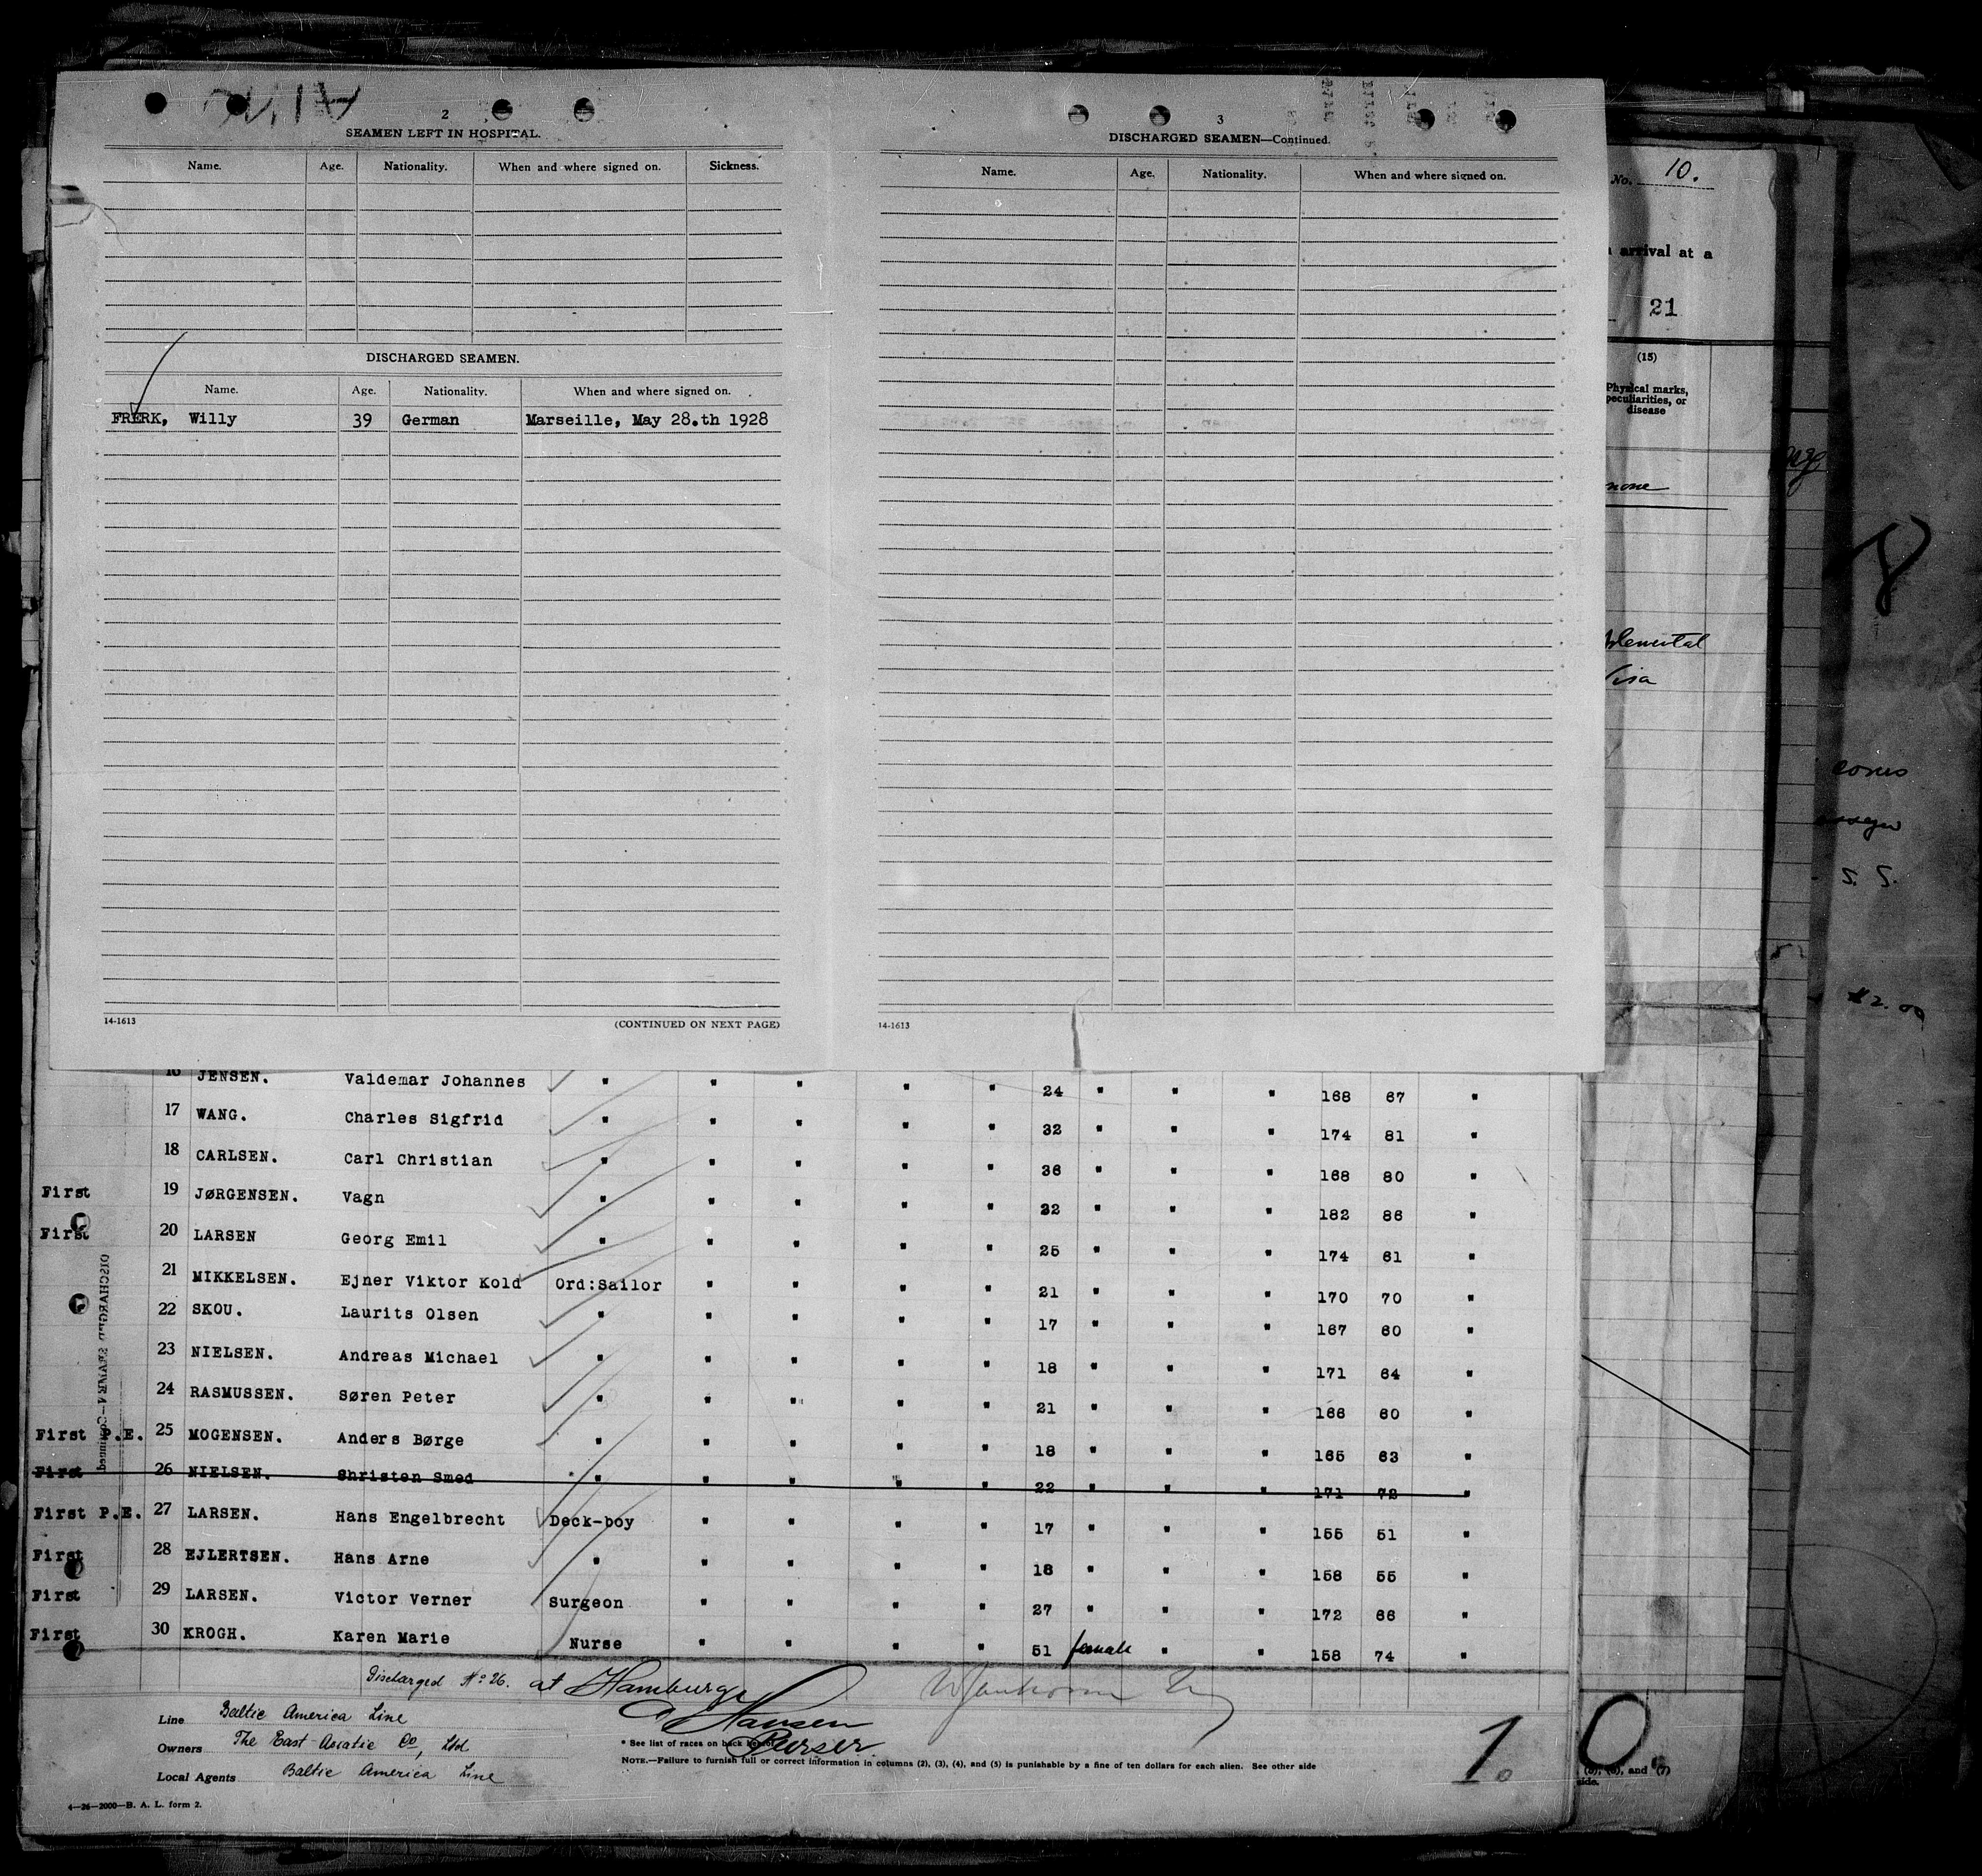 2
SEAMEN LEFT IN HOSPITAL.
Name. Age. Nationality. When and where signed on. Sickness.
DISCHARGED SEAMEN.
Name. Age. Nationality. When and where signed on.
FRERK, Willy 39 German Marseille, May 28.th 1928
14-1613 (CONTINUED ON NEXT PAGE)
3
DISCHARGED SEAMEN—Continued.
Name. Age. Nationality. When and where signed on.
14-1613
No. 10.
arrival at a
21
(15)
Physical marks,
peculiarities, or
disease
none
Visa
S. S.
$2.00
16 JENSEN. Valdemar Johannes " " " " " 24 " " " 168 67 "
17 WANG. Charles Sigfrid " " " " " 32 " " " 174 81 "
18 CARLSEN. Carl Christian " " " " " 36 " " " 168 80 "
First 19 JØRGENSEN. Vagn " " " " " 22 " " " 182 86 "
First 20 LARSEN Georg Emil " " " " " 25 " " " 174 61 "
21 MIKKELSEN. Ejner Viktor Kold Ord:Sailor " " " " 21 " " " 170 70 "
22 SKOU. Laurits Olsen " " " " " 17 " " " 167 60 "
23 NIELSEN. Andreas Michael " " " " " 18 " " " 171 64 "
24 RASMUSSEN. Søren Peter " " " " " 21 " " " 166 60 "
First P.E. 25 MOGENSEN. Anders Børge " " " " " 18 " " " 165 63 "
First 26 NIELSEN. Christen Smed " " " " " 22 " " " 171 72 "
First P.E. 27 LARSEN. Hans Engelbrecht Deck-boy " " " " 17 " " " 155 51 "
First 28 EJLERTSEN. Hans Arne " " " " " 18 " " " 158 55 "
First 29 LARSEN. Victor Verner Surgeon " " " " 27 " " " 172 66 "
First 30 KROGH. Karen Marie Nurse " " " " 51 female " " 158 74 "
DISCHARGED SEAMEN—Continued
Discharged No 26. at Hamburg
Hansen
Purser.
Line Baltic America Line
Owners The East Asiatic Co, Ltd
Local Agents Baltic America Line
* See list of races on back hereof.
NOTE.—Failure to furnish full or correct information in columns (2), (3), (4), and (5) is punishable by a fine of ten dollars for each alien. See other side
4—26—2000—B. A. L. form 2.
1.
0.
(5), (6), and (7)
side.